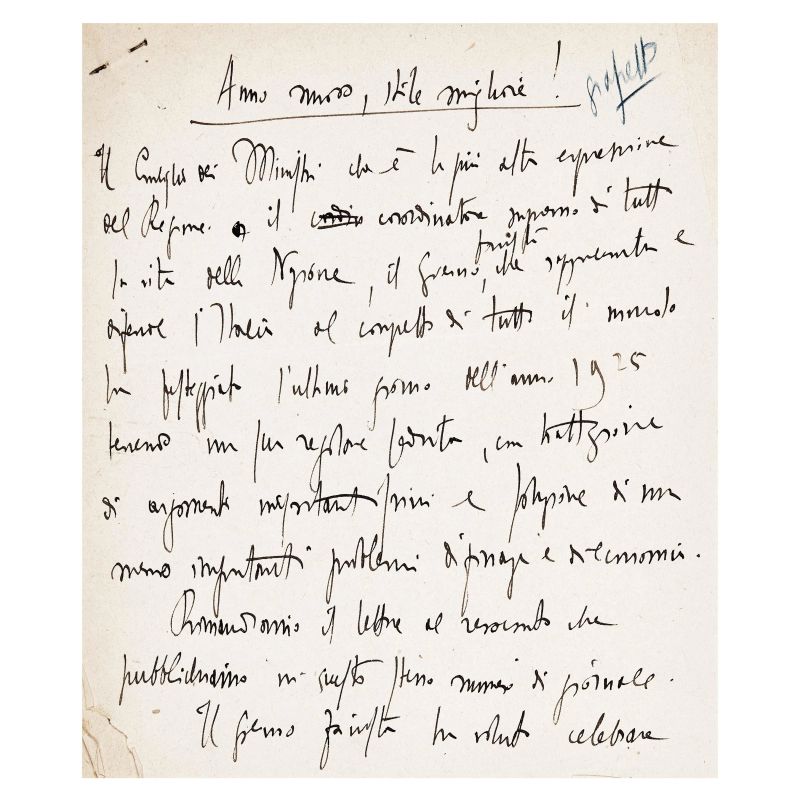 Anno nuovo, stile migliore!
grassetto
Il Consiglio dei Ministri che è la più alta espressione
del Regime e il coordinatore supremo di tutta
la vita della Nazione, il Governo fascista, che rappresenta e
difende l'Italia al cospetto di tutto il mondo
ha festeggiato l'ultimo giorno dell'anno 1925
tenendo una sua regolare seduta, con trattazione
di argomenti importantissimi e soluzione di non
meno importanti problemi di finanza e di economia.
Rimandiamo il lettore al resoconto che
pubblichiamo in questo stesso numero di giornale.
Il Governo fascista ha voluto celebrare